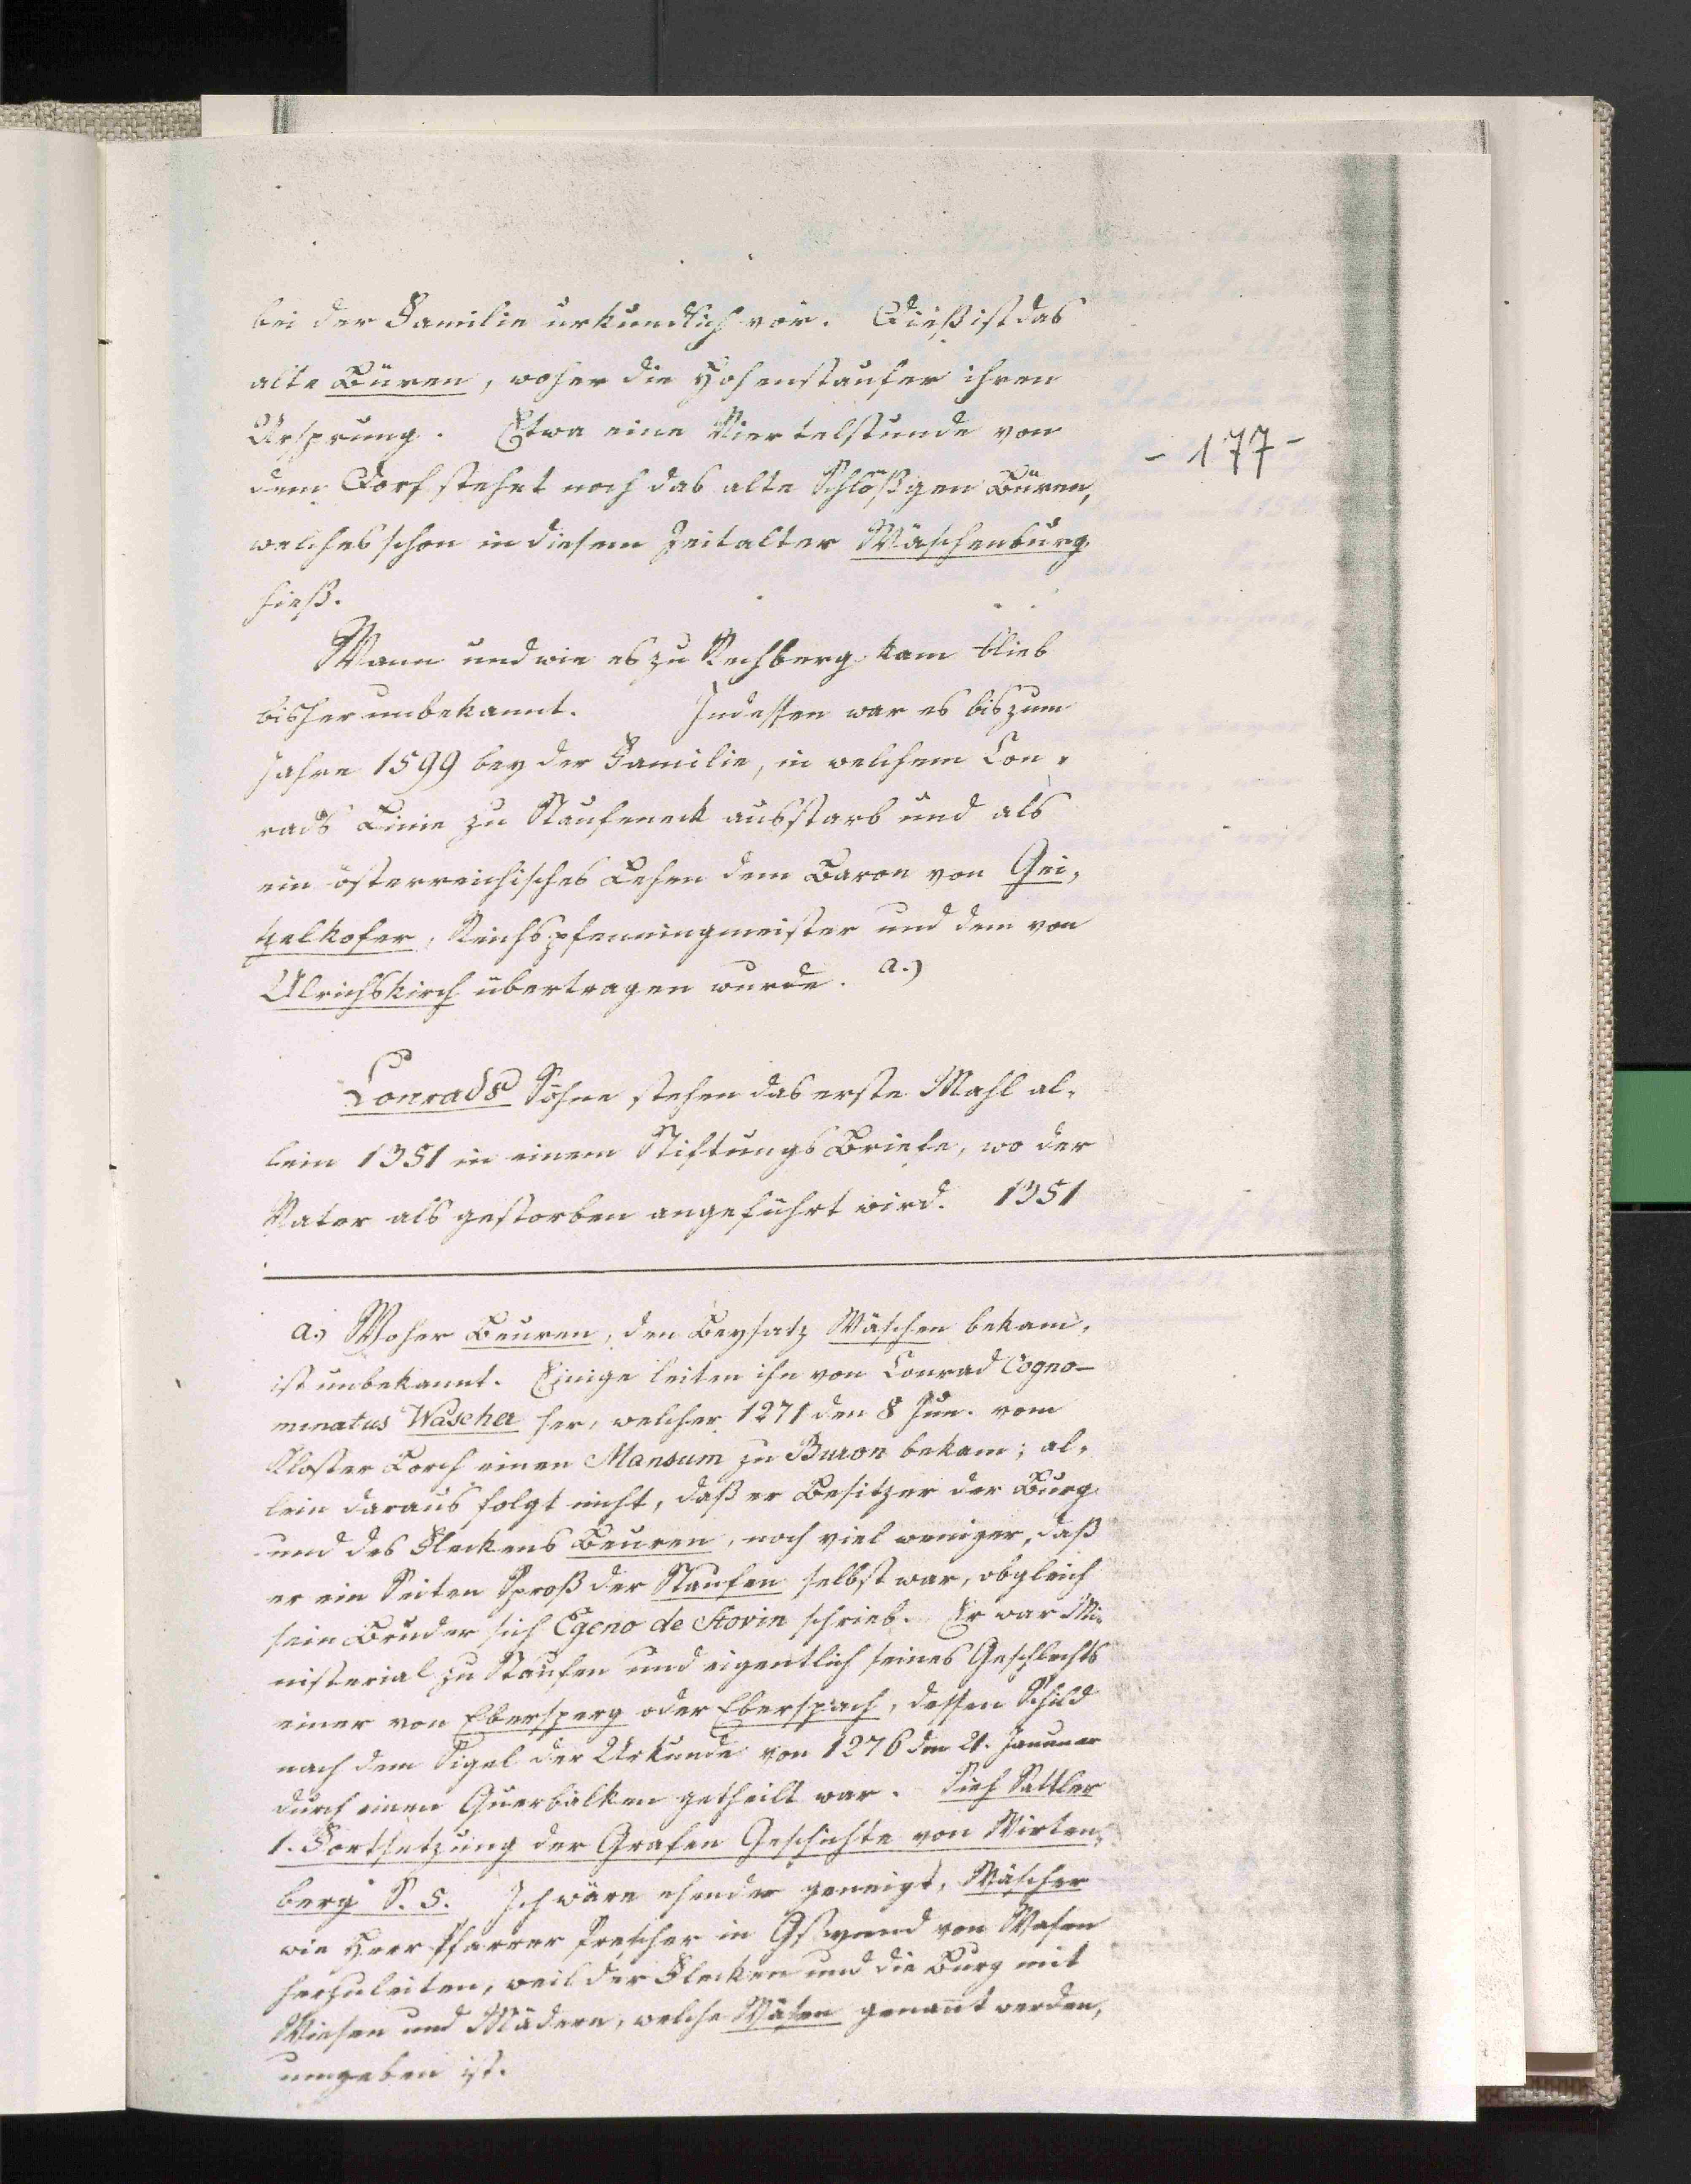 bei der Familie urkundlich vor. Dieß ist das
alte Büren, woher die Hohenstaufer ihren
Ursprung. Etwa eine Viertelstunde von
- 177 -
dem Dorf stehet noch das alte Schlößgen Büren,
welches schon in diesem Zeitalter Wäschenburg
hieß.
Wann und wie es zu Rechberg kam blieb
bisher unbekannt. Indessen war es bis zum
Jahre 1599 bey der Familie, in welchem Con-
rads Linie zu Staufeneck ausstarb und als
ein österreichisches Lehen dem Baron von Gei-
zelkofer, Reichspfenningmeister und dem von
Ulrichskirch übertragen wurde. a.)
Conrads Söhne stehen das erste Mahl al-
lein 1351 in einem Stiftungs Briefe, wo der
Vater als gestorben angeführt wird. 1351
a.) Woher Beuren, den Beysatz Wäschen bekam,
ist unbekannt. Einige leiten ihn von Conrad Cogno-
minatus Wascher her, welcher 1271 den 8 Jun. vom
Kloster Lorch einen Mansum zu Buron bekam; al-
lein daraus folgt nicht, daß er Besitzer der Burg
und des Fleckens Beuren, noch viel weniger, daß
er ein Seiten Sproß der Staufen selbst war, obgleich
sein Bruder sich Egeno de Stovin schrieb. Er war Mi-
nisterial zu Staufen und eigentlich seines Geschlechts
einer von Ebersperg oder Eberspach, dessen Schild
nach dem Sigel der Urkunde von 1276 den 21. Januar
durch einen Querbalken getheilt war. Sieh Sattler
1. Fortsetzung der Grafen Geschichte von Wirten-
berg S. 5. Ich wäre ehender geneigt, Wäscher
wie Herr Pfarrer Prescher in Gschwend von Wasen
herzuleiten, weil der Flecken und die Burg mit
Wiesen und Mädern, welche Wäsen genannt werden,
umgeben ist.